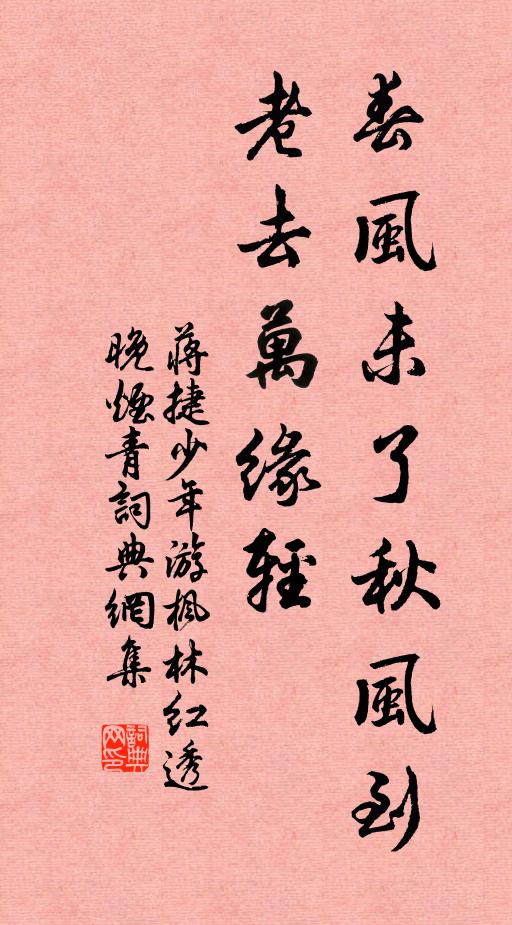 春風未了秋風到
老去萬緣輕
蔣捷少年游楓林紅透
晚煙青詞典網集
詞典
网印